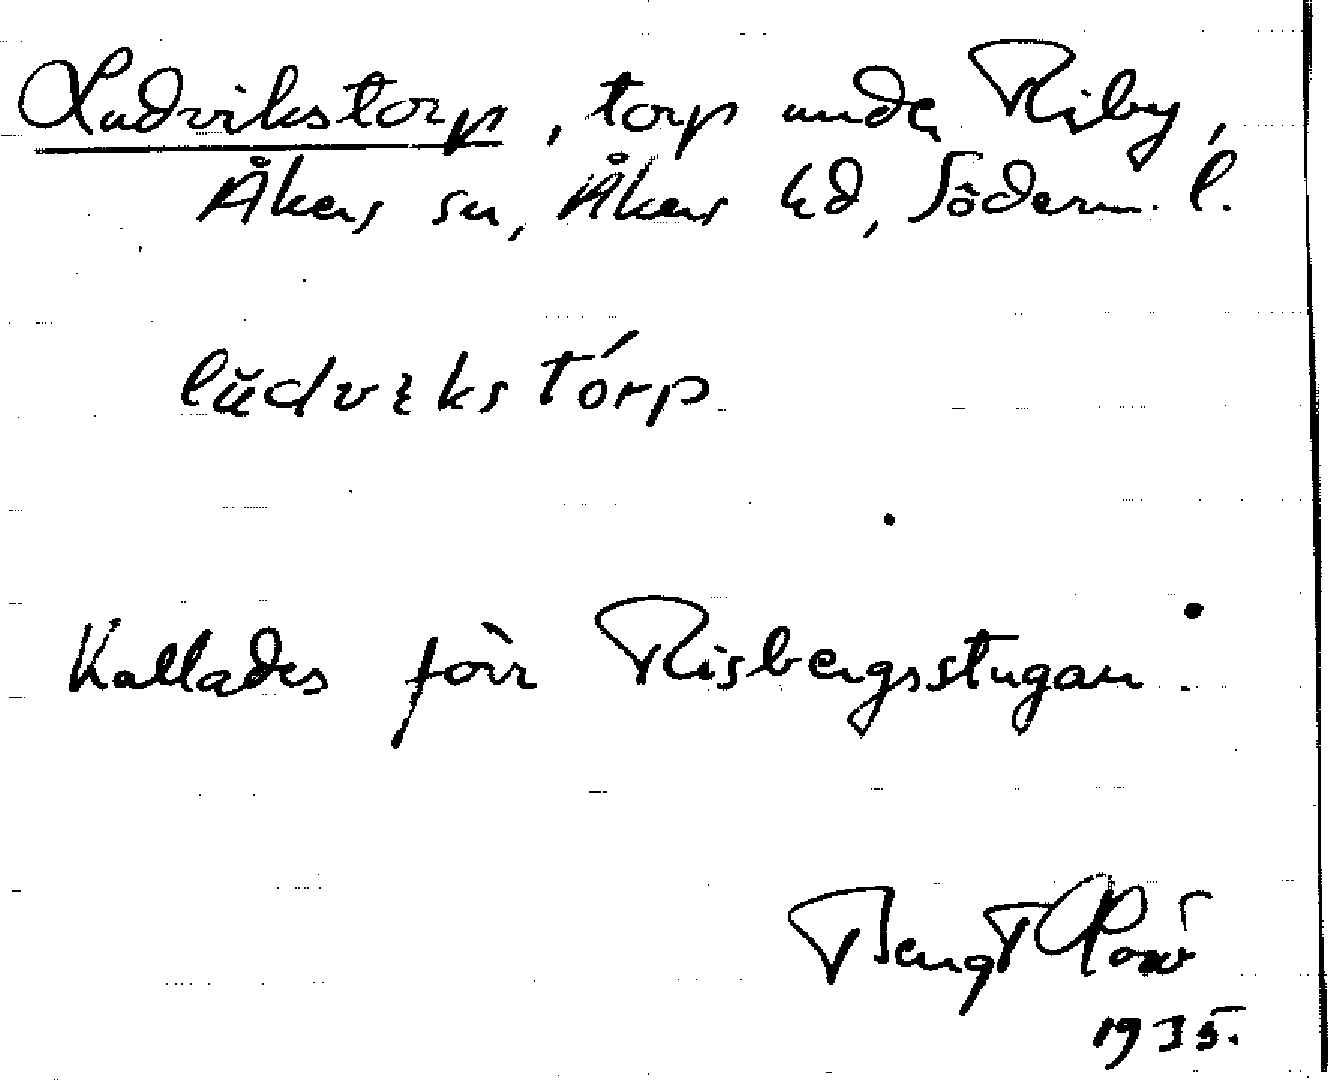 Ludvikstorp, torp under Riby,
Åkers sn, Åkers hd, Söderm. l.
lŭdvɩkstórp
Kallades förr Risbergsstugan.
Bengt
1935.